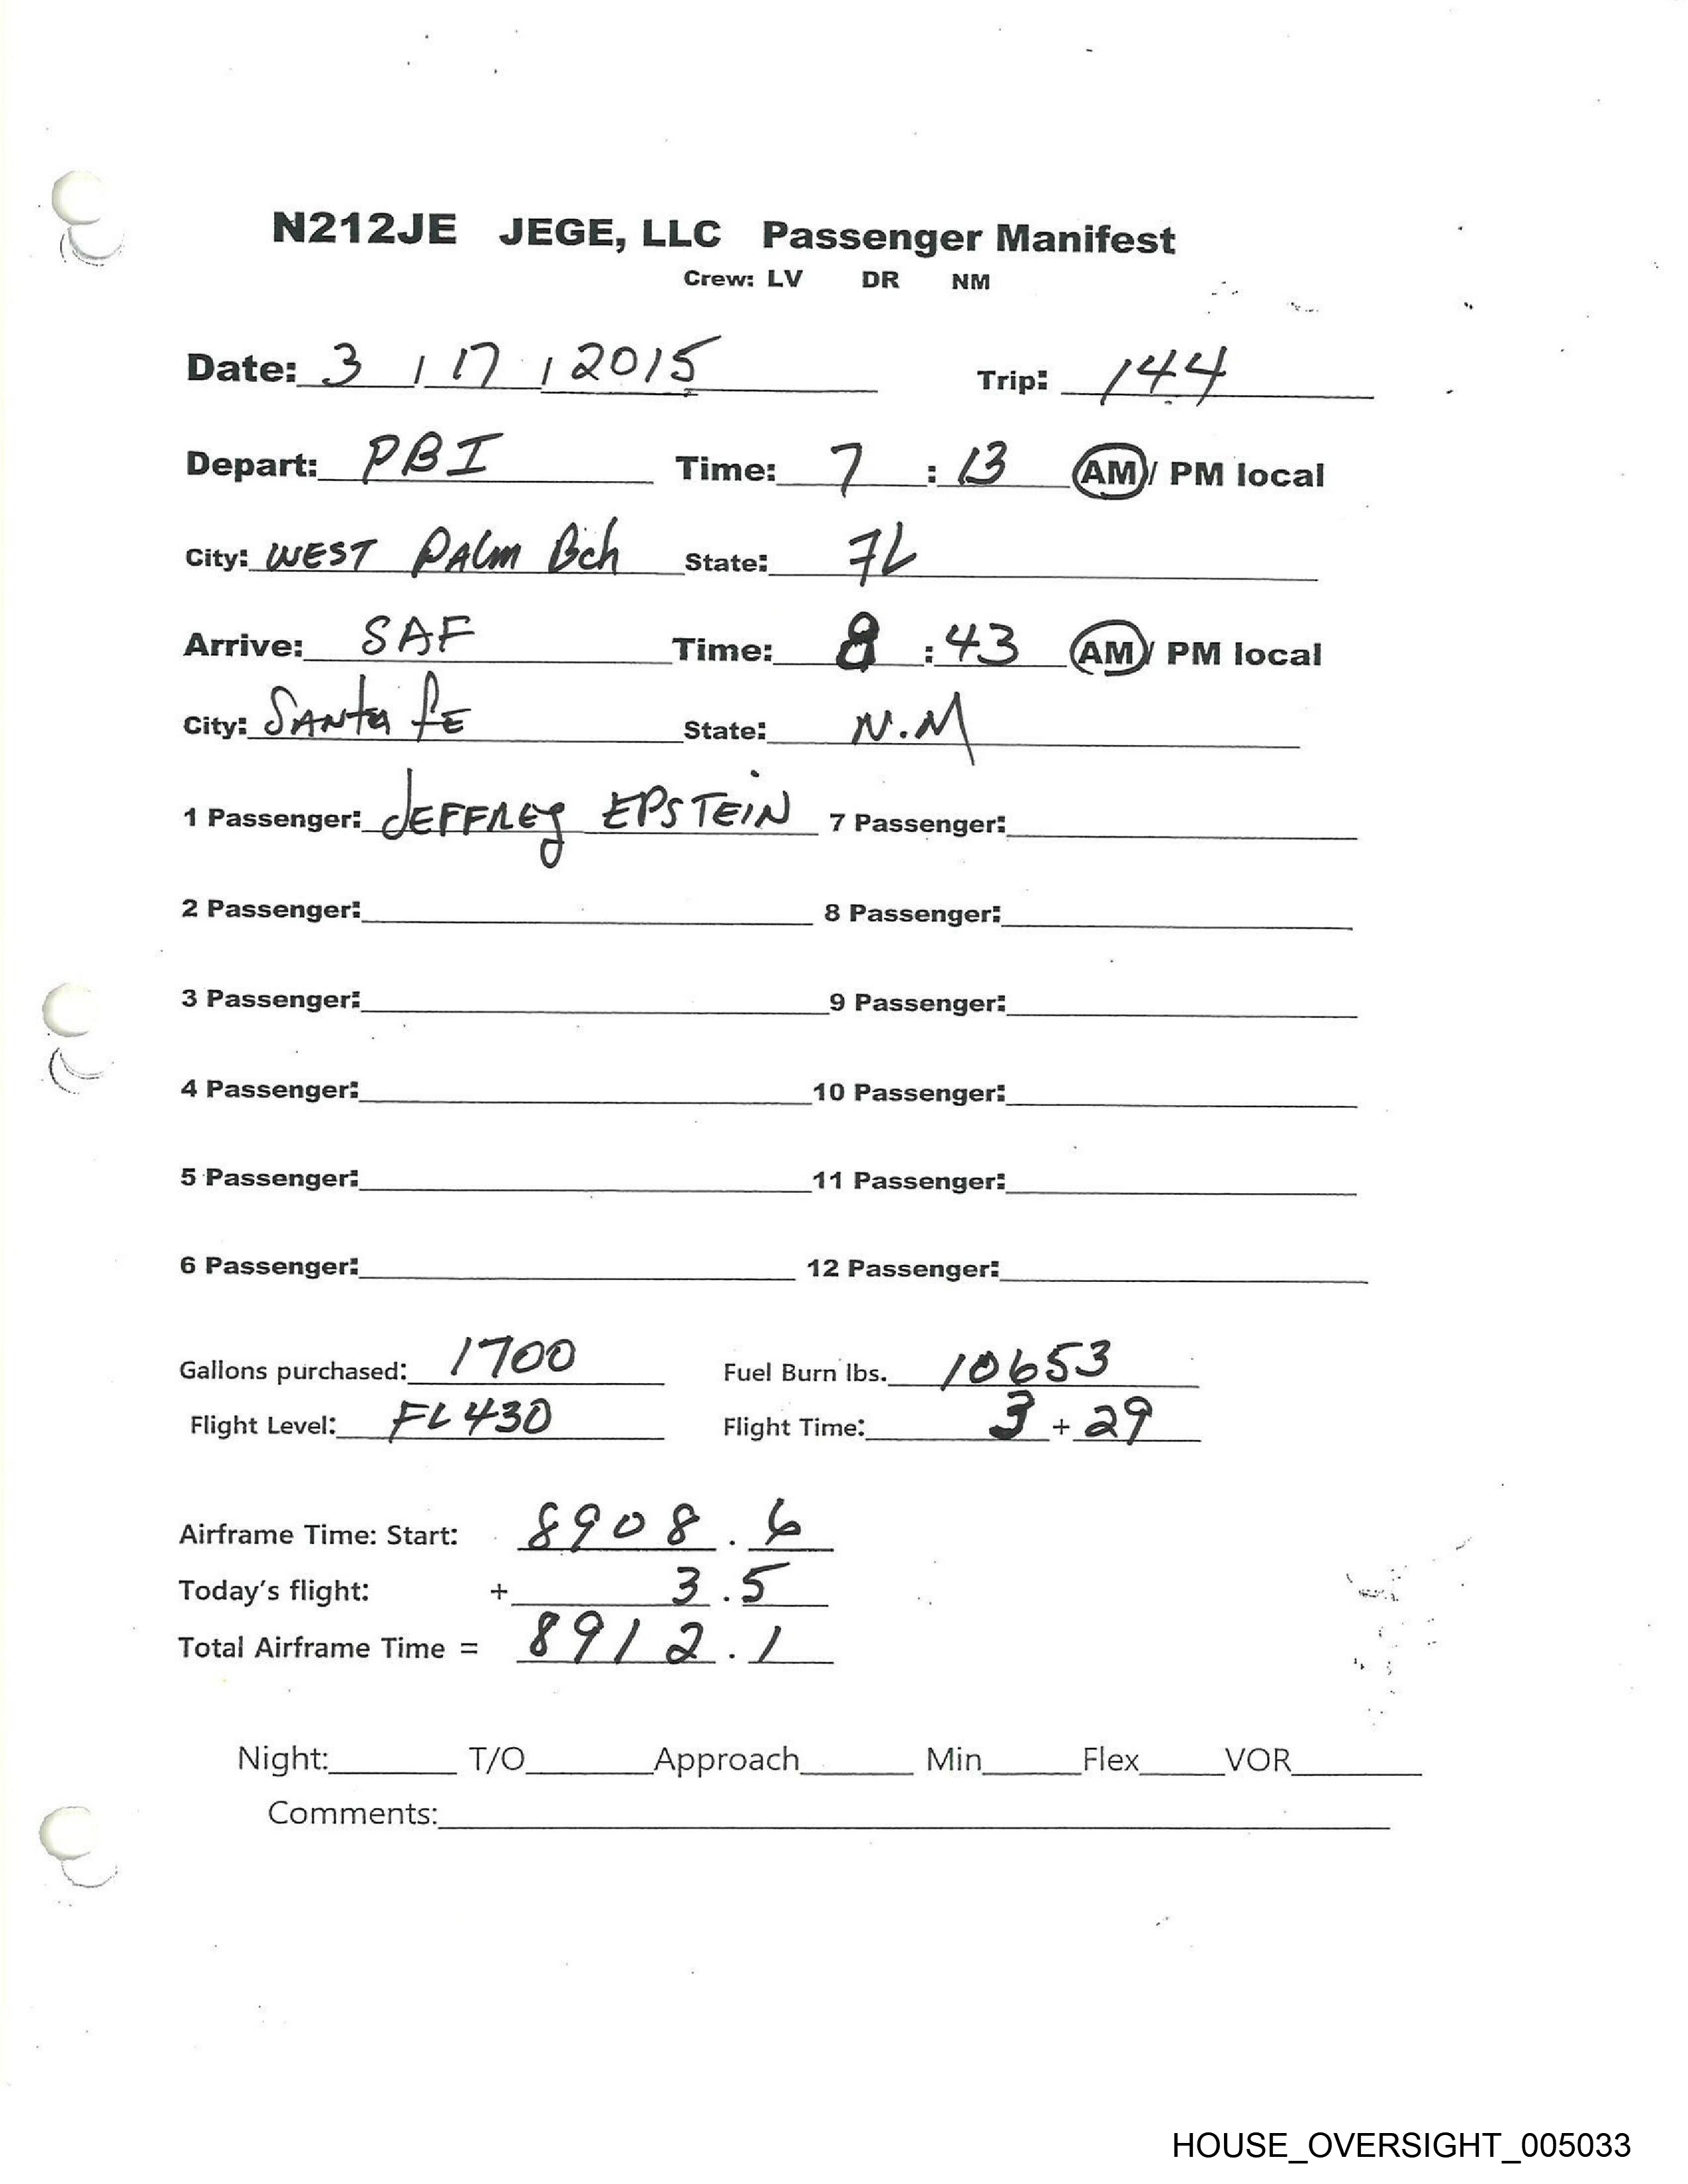 N212JE JEGE, LLC Passenger Manifest
Crew: LV DR NM
Date: 3 / 17 / 2015 Trip: 144
Depart: PBI Time: 7 : 13 AM / PM local
City: WEST PALM Bch State: FL
Arrive: SAF Time: 8 : 43 AM / PM local
City: SANTA FE State: N.M
1 Passenger: JEFFREY EPSTEIN 7 Passenger:
2 Passenger: 8 Passenger:
3 Passenger: 9 Passenger:
4 Passenger: 10 Passenger:
5 Passenger: 11 Passenger:
6 Passenger: 12 Passenger:
Gallons purchased: 1700 Fuel Burn lbs. 10653
Flight Level: FL430 Flight Time: 3 + 29
Airframe Time: Start: 8908.6
Today's flight: + 3.5
Total Airframe Time = 8912.1
Night: T/O Approach Min Flex VOR
Comments:
HOUSE_OVERSIGHT_005033